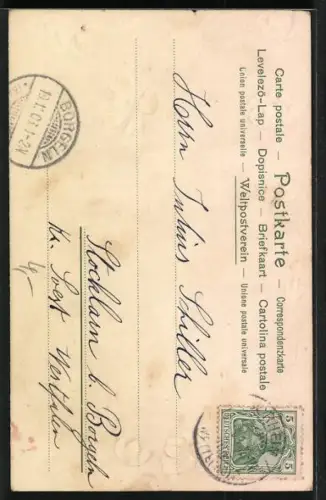 Carte postale – Postkarte – Correspondenzkarte
Levelező-Lap – Dopisnice – Briefkaart – Cartolina postale
Union postale universelle – Weltpostverein – Unione postale universale
BORGELN
5 5
Herrn Julius Schiller
Stocklarn b. Borgeln
Kr. Soest Westfalen